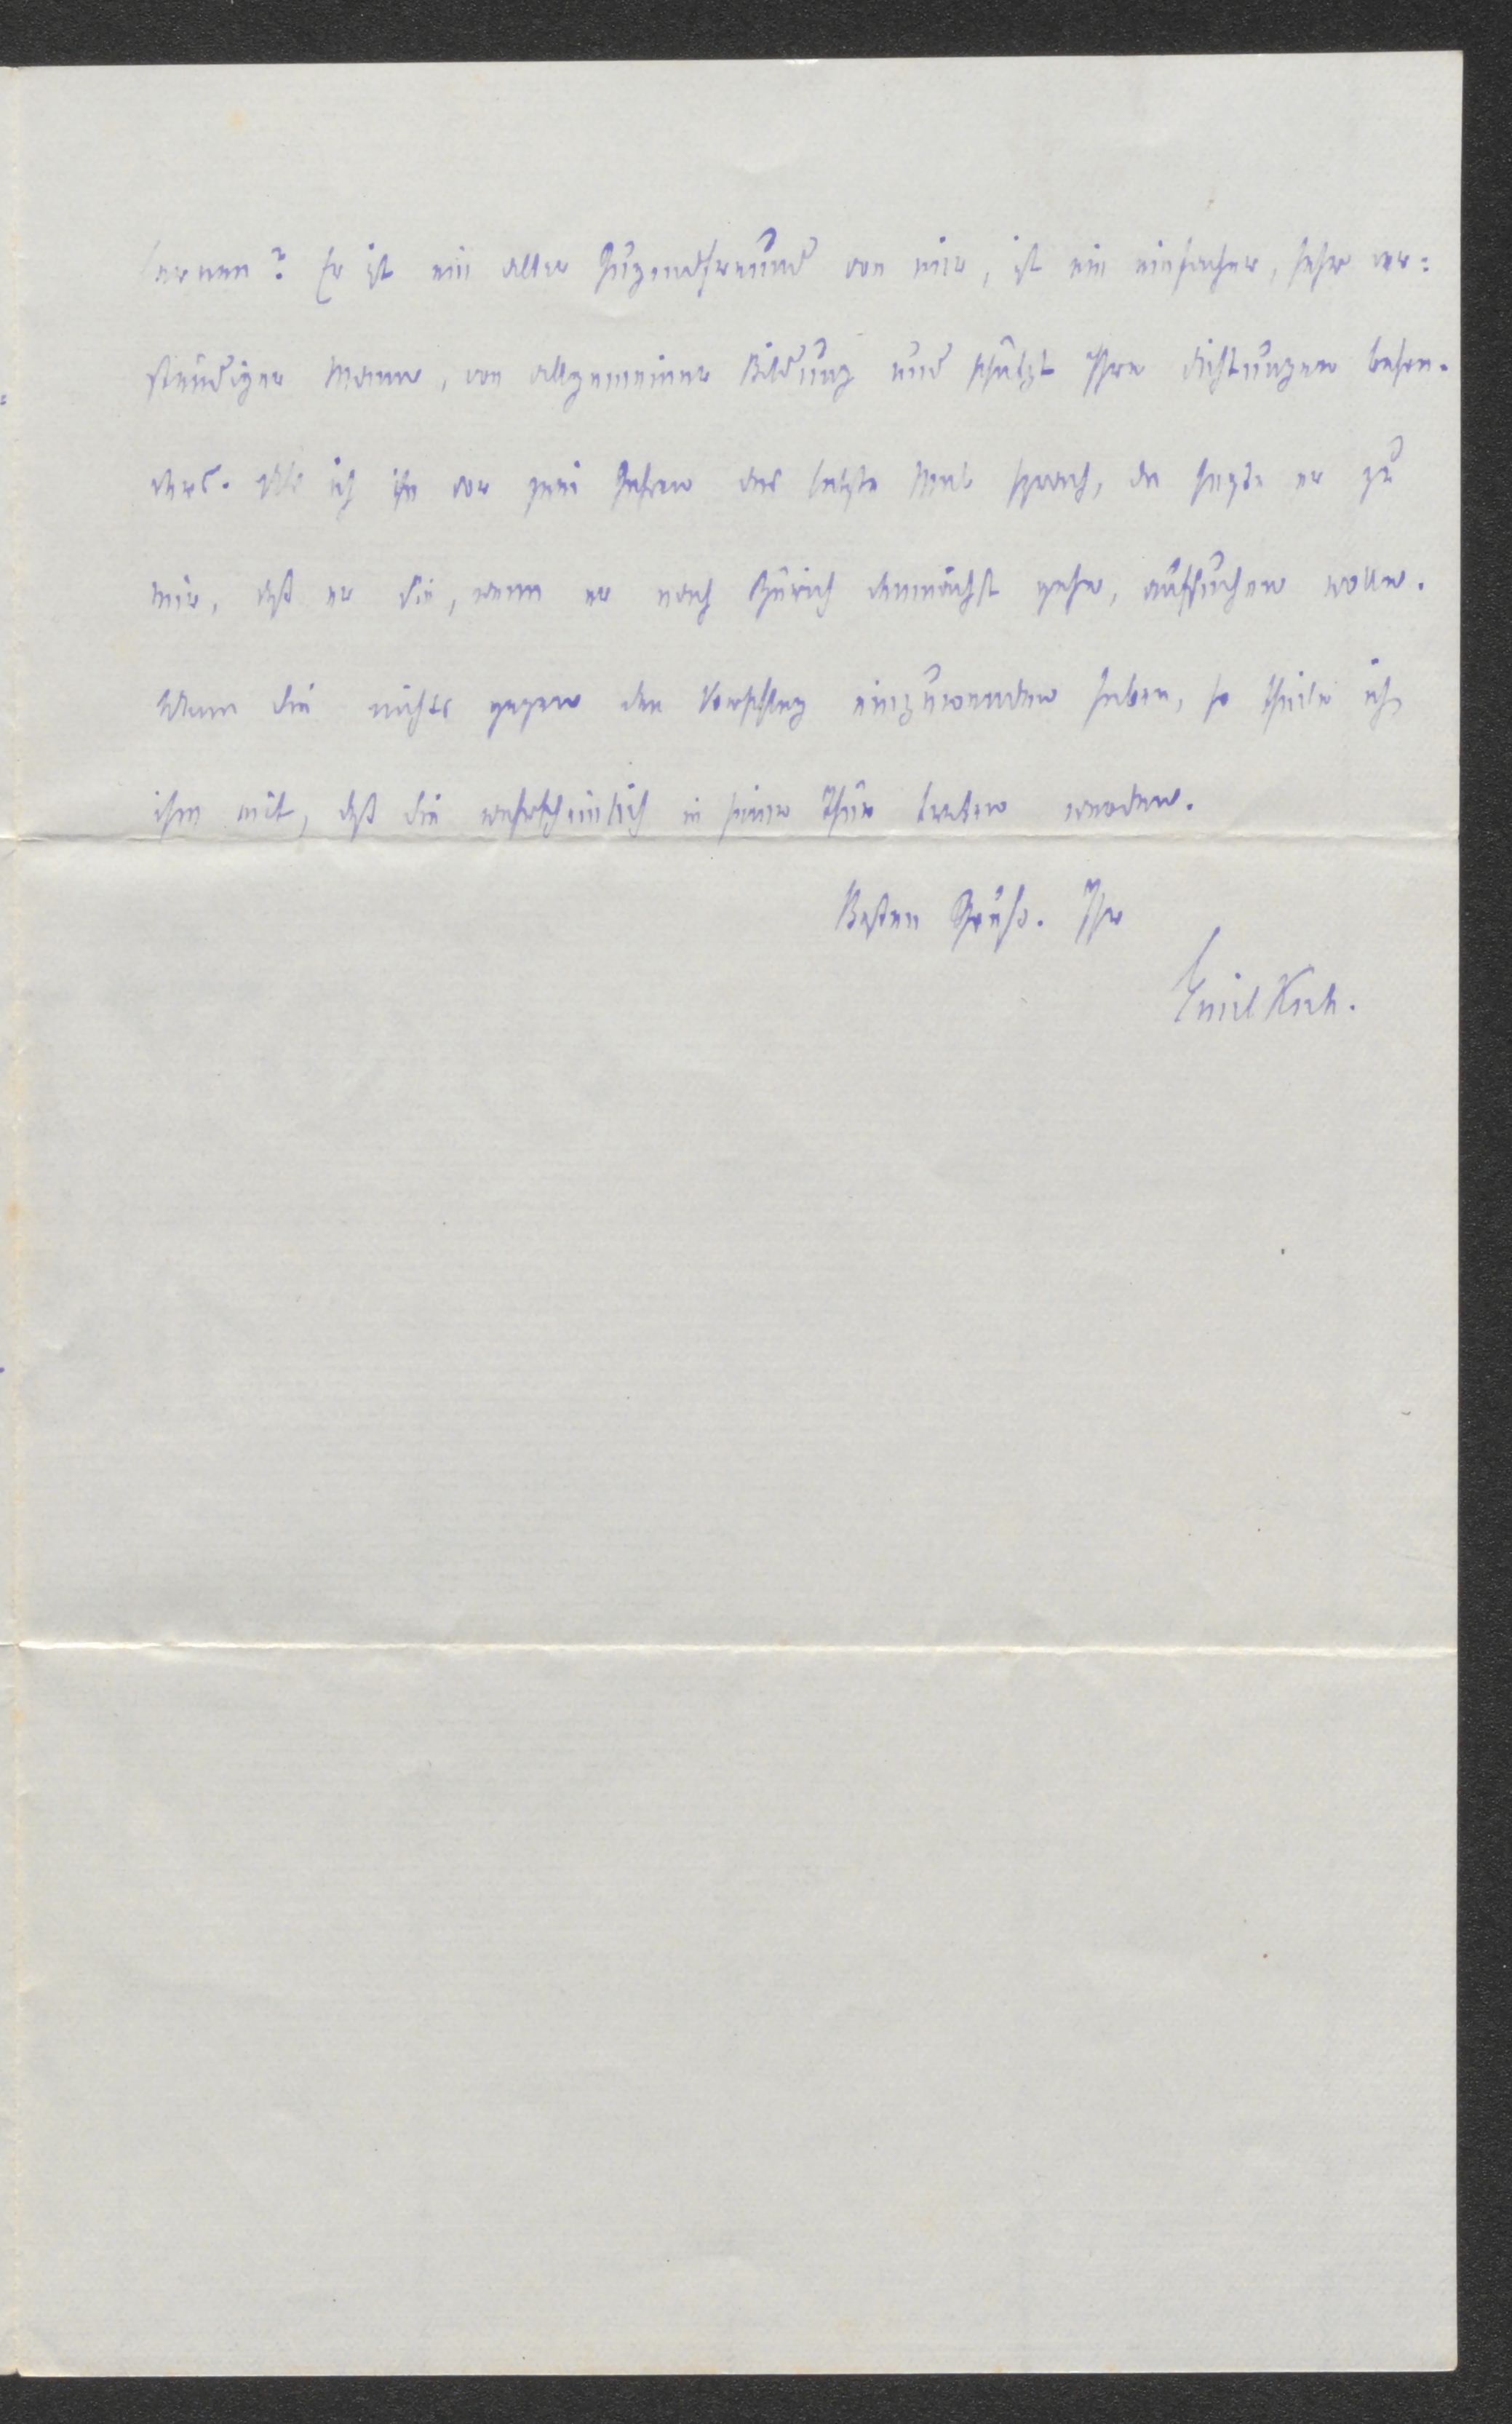 lernen? Er ist ein alter Jugendfreund von mir, ist ein einfacher, sehr ver:
ständiger Mann, von allgemeiner Bildung und schätzt Ihre Dichtungen beson-
ders. Als ich ihn vor zwei Jahren das letzte Mal sprach, da sagte er zu
mir, daß er Sie, wenn er nach Zürich demnächst gehe, aufsuchen wolle.
Wenn Sie nichts gegen den Vorschlag einzuwenden haben, so theile ich
ihm mit, daß Sie wahrscheinlich in seine Thür treten werden.
Besten Gruß. Ihr
Emil Kuh.